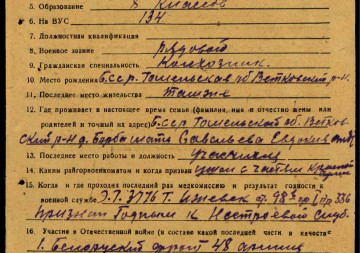 5. Образование 8 классов
6. На ВУС 134
7. Должностная квалификация
8. Военное звание рядовой
9. Гражданская специальность Колхозник
10. Место рождения БССР Гомельская об Ветковский р-н
11. Последнее место жительства
12. Где проживает в настоящее время семья (фамилия, имя и отчество жены или
родителей и точный их адрес) БССР Гомельской об Ветков
ский р-н д. мать Савельева
13. Последнее место работы и должность
14. Каким райгорвоенкоматом и когда призван
15. Когда и где проходил последний раз медкомиссию и результат годности к
военной службе Э.Г. 3776 Г. Ижевск ст 98 пр 336
признан Годным к Нестроевой служ.
16. Участие в Отечественной войне (в составе какой последней части и качестве
1. Белорусский фронт 48 армия